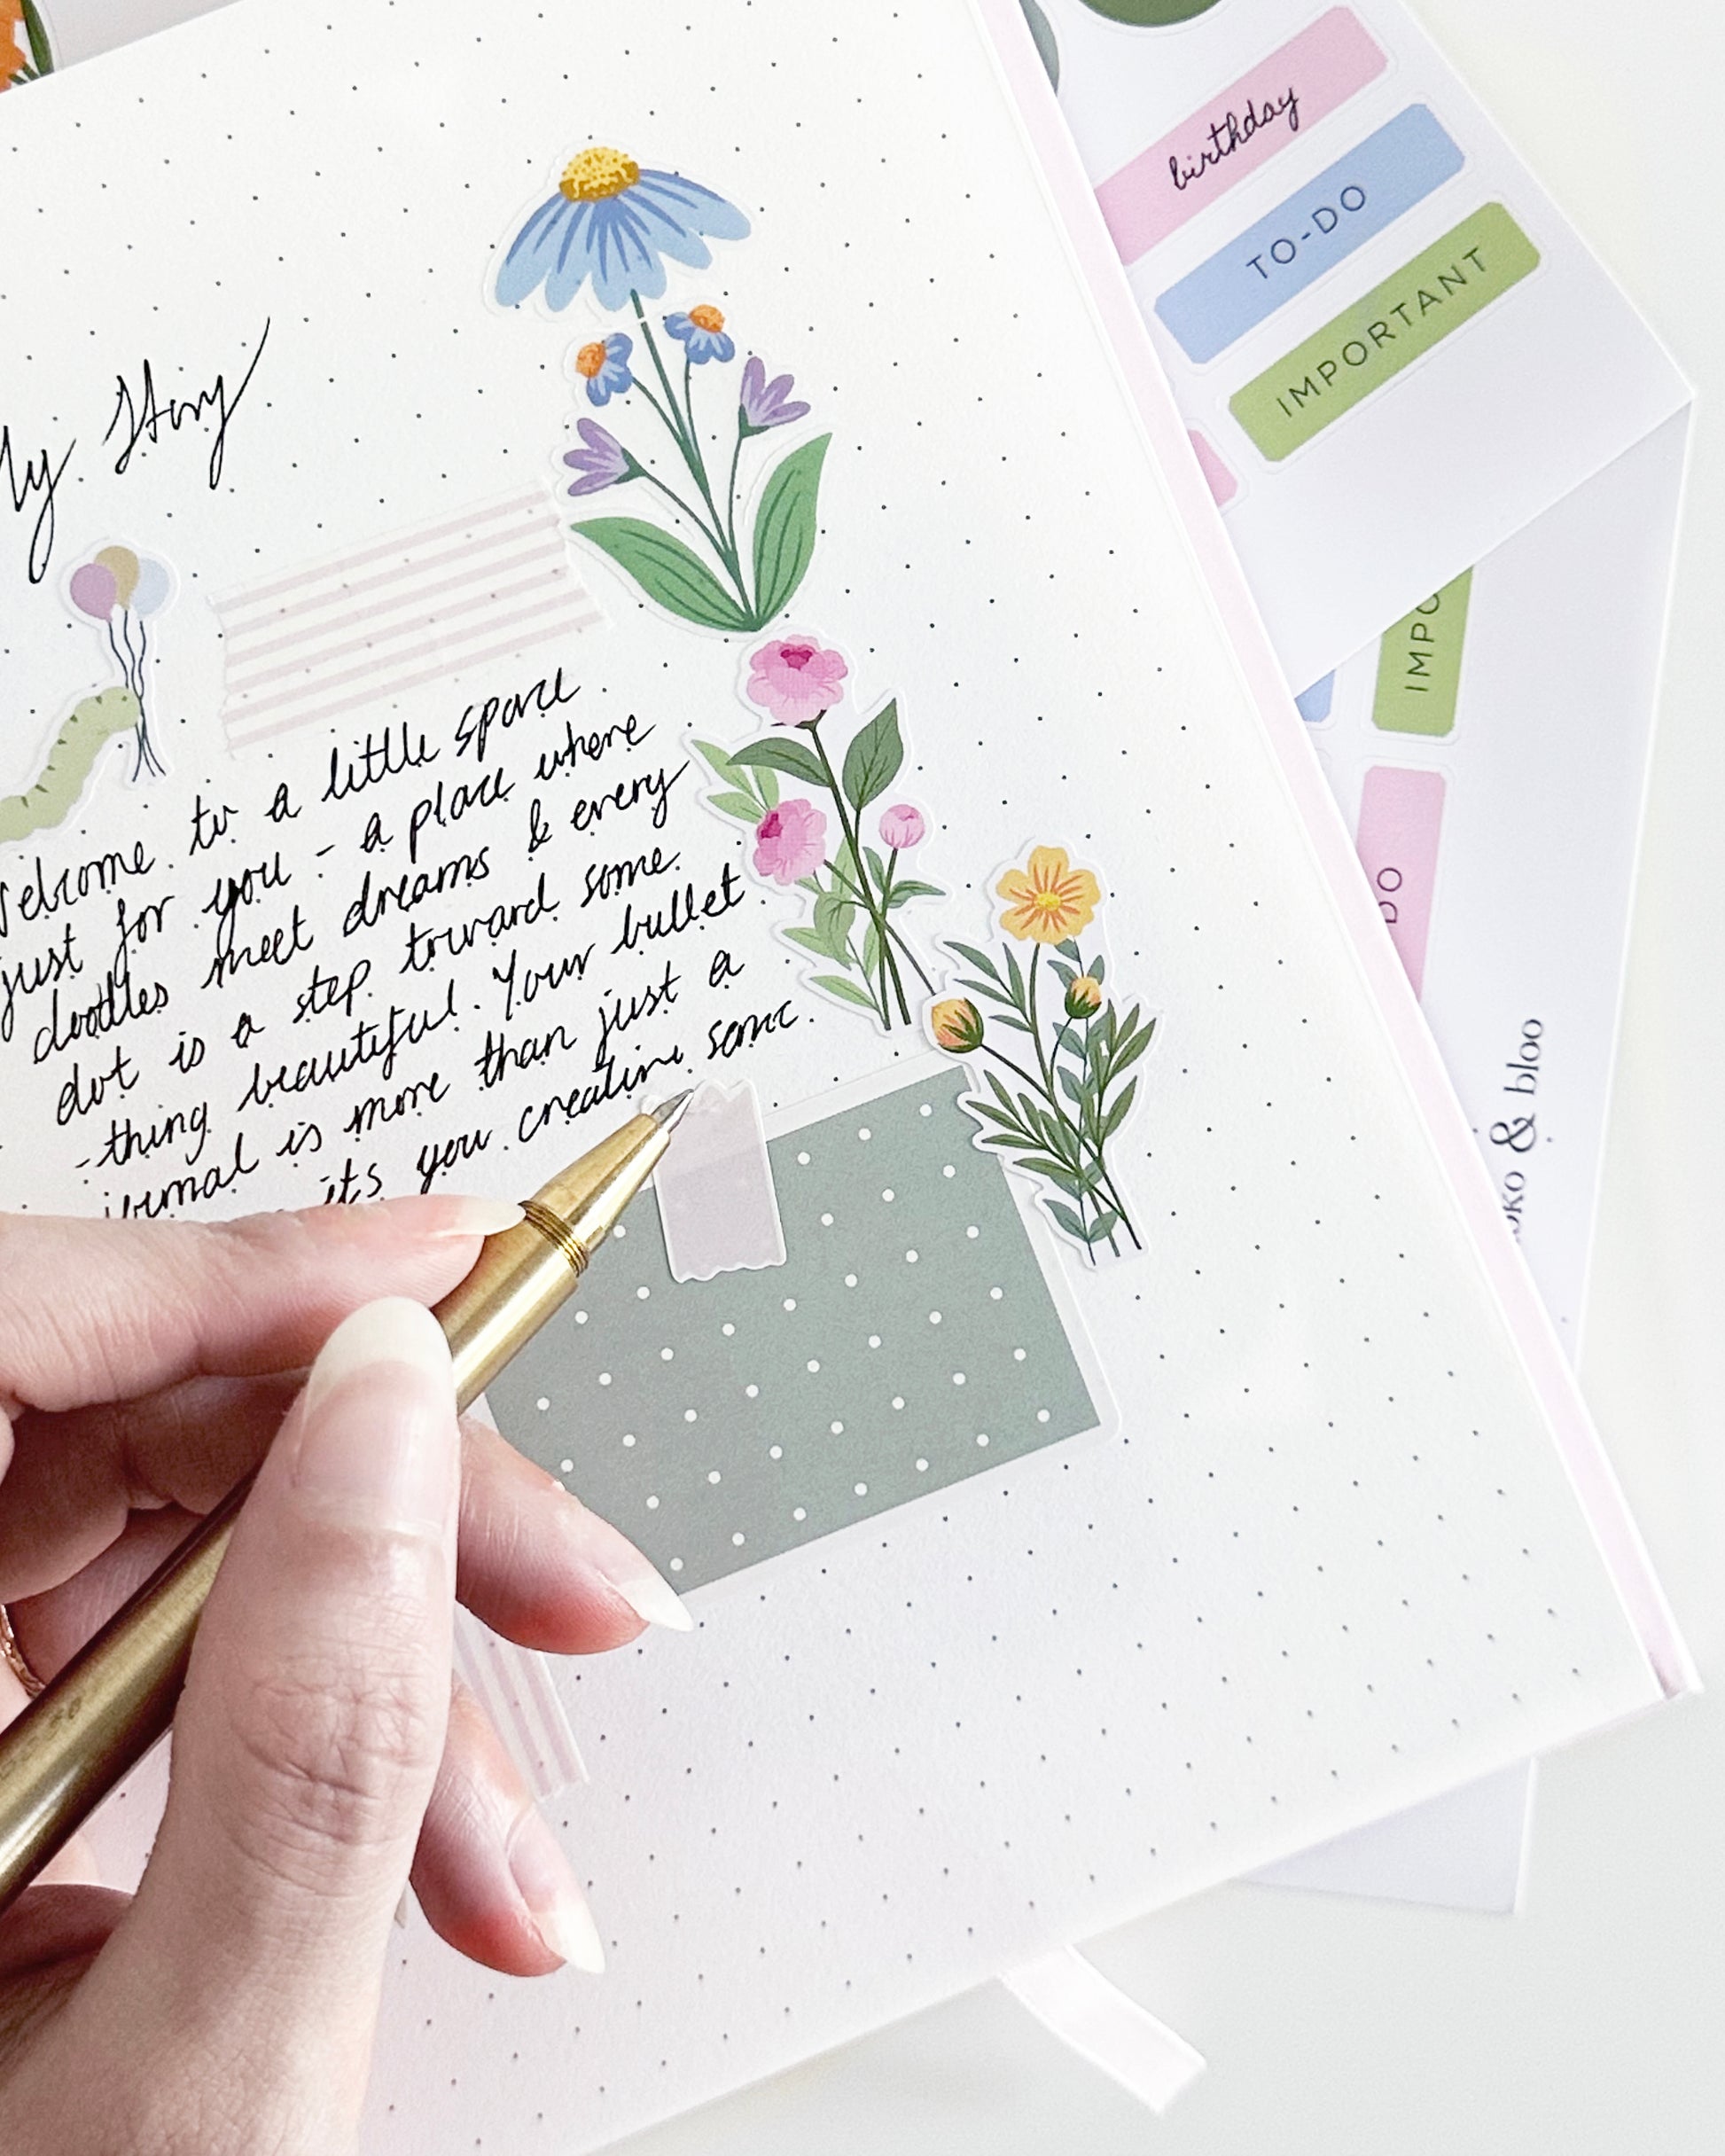 My Story
Welcome to a little space
just for you - a place where
doodles meet dreams & every
dot is a step toward some
-thing beautiful. Your bullet
journal is more than just a
it's you creating some
birthday
TO-DO
IMPORTANT
IMPO
DO
oko & bloo